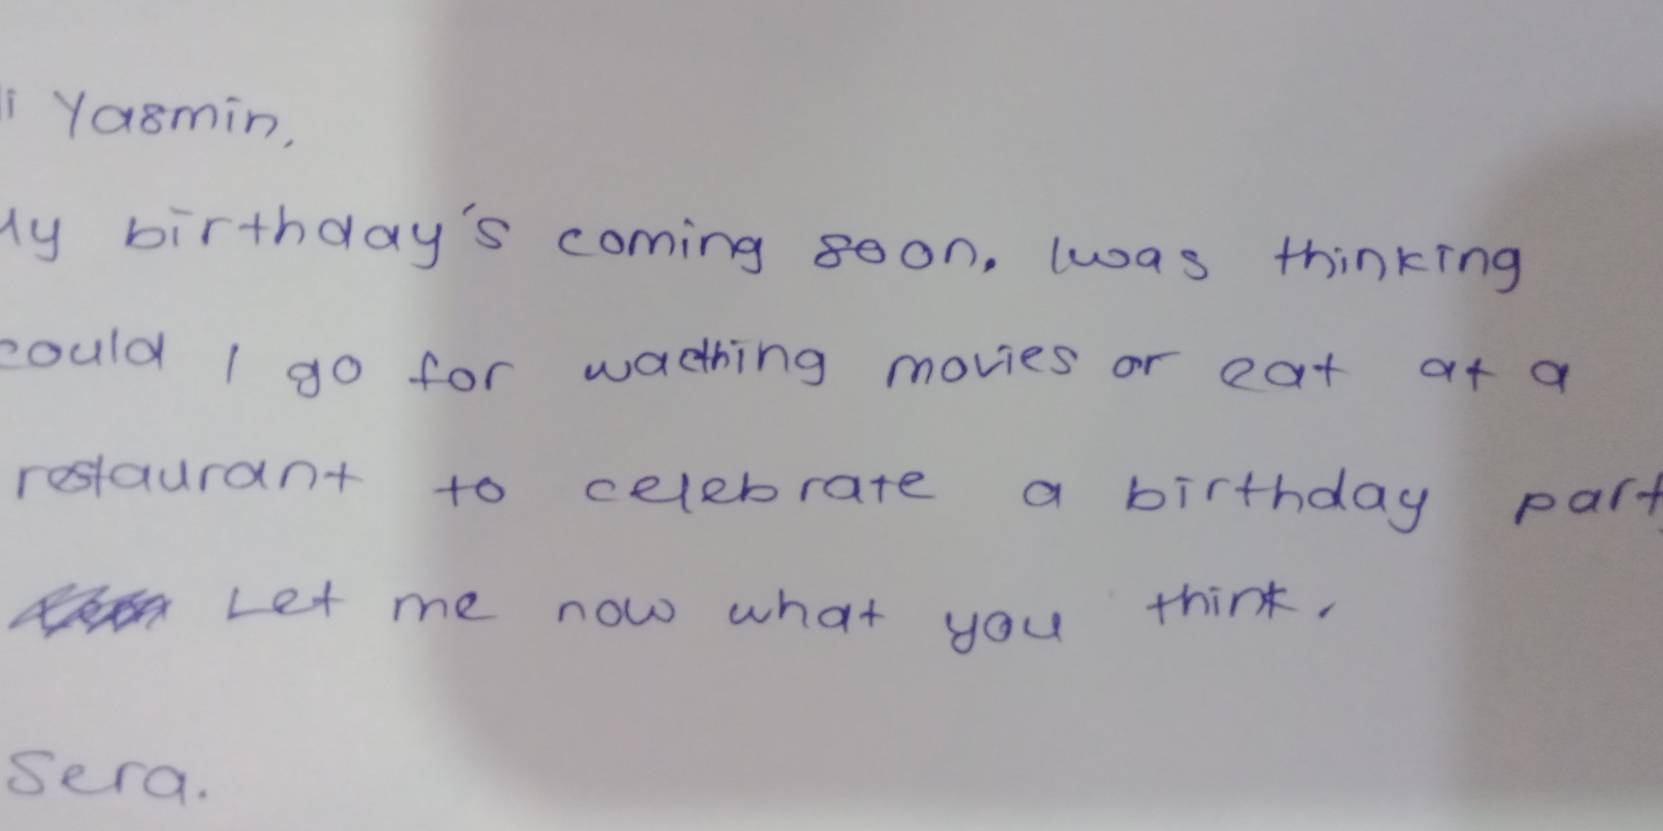 i Yasmin,
My birthday's coming soon. I was thinking
could I go for wacthing movies or eat at a
restaurant to celebrate a birthday part
Let me now what you think.
Sera.